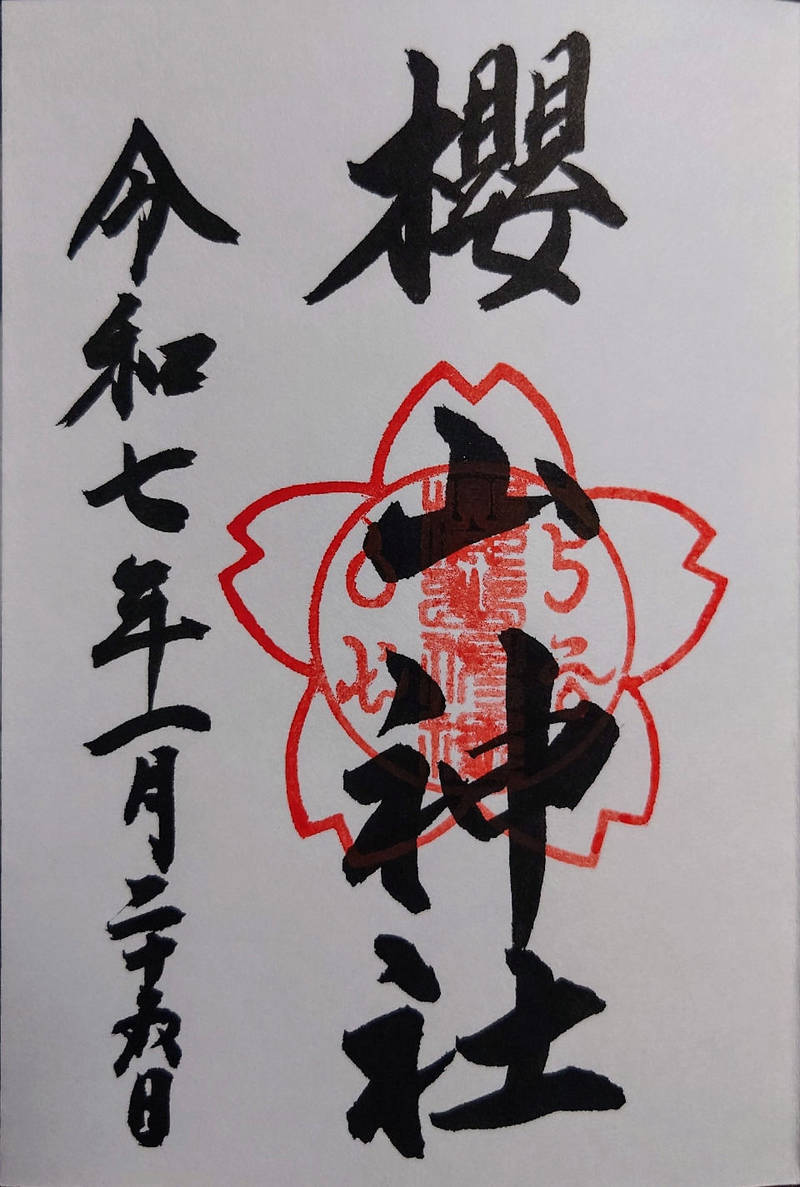 櫻山神社
令和七年一月二十日